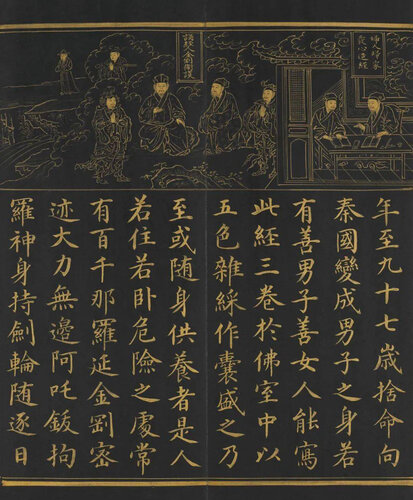 婦人歸家
發心造經
誦經人金剛衛護
年至九十七歳捨命向
秦國變成男子之身若
有善男子善女人能寫
此經三卷於佛室中以
五色雜綵作囊盛之乃
至或随身供養者是人
若住若卧危險之處常
有百千那羅延金剛密
迹大力無邊阿吒鈑拘
羅神身持劍輪随逐日